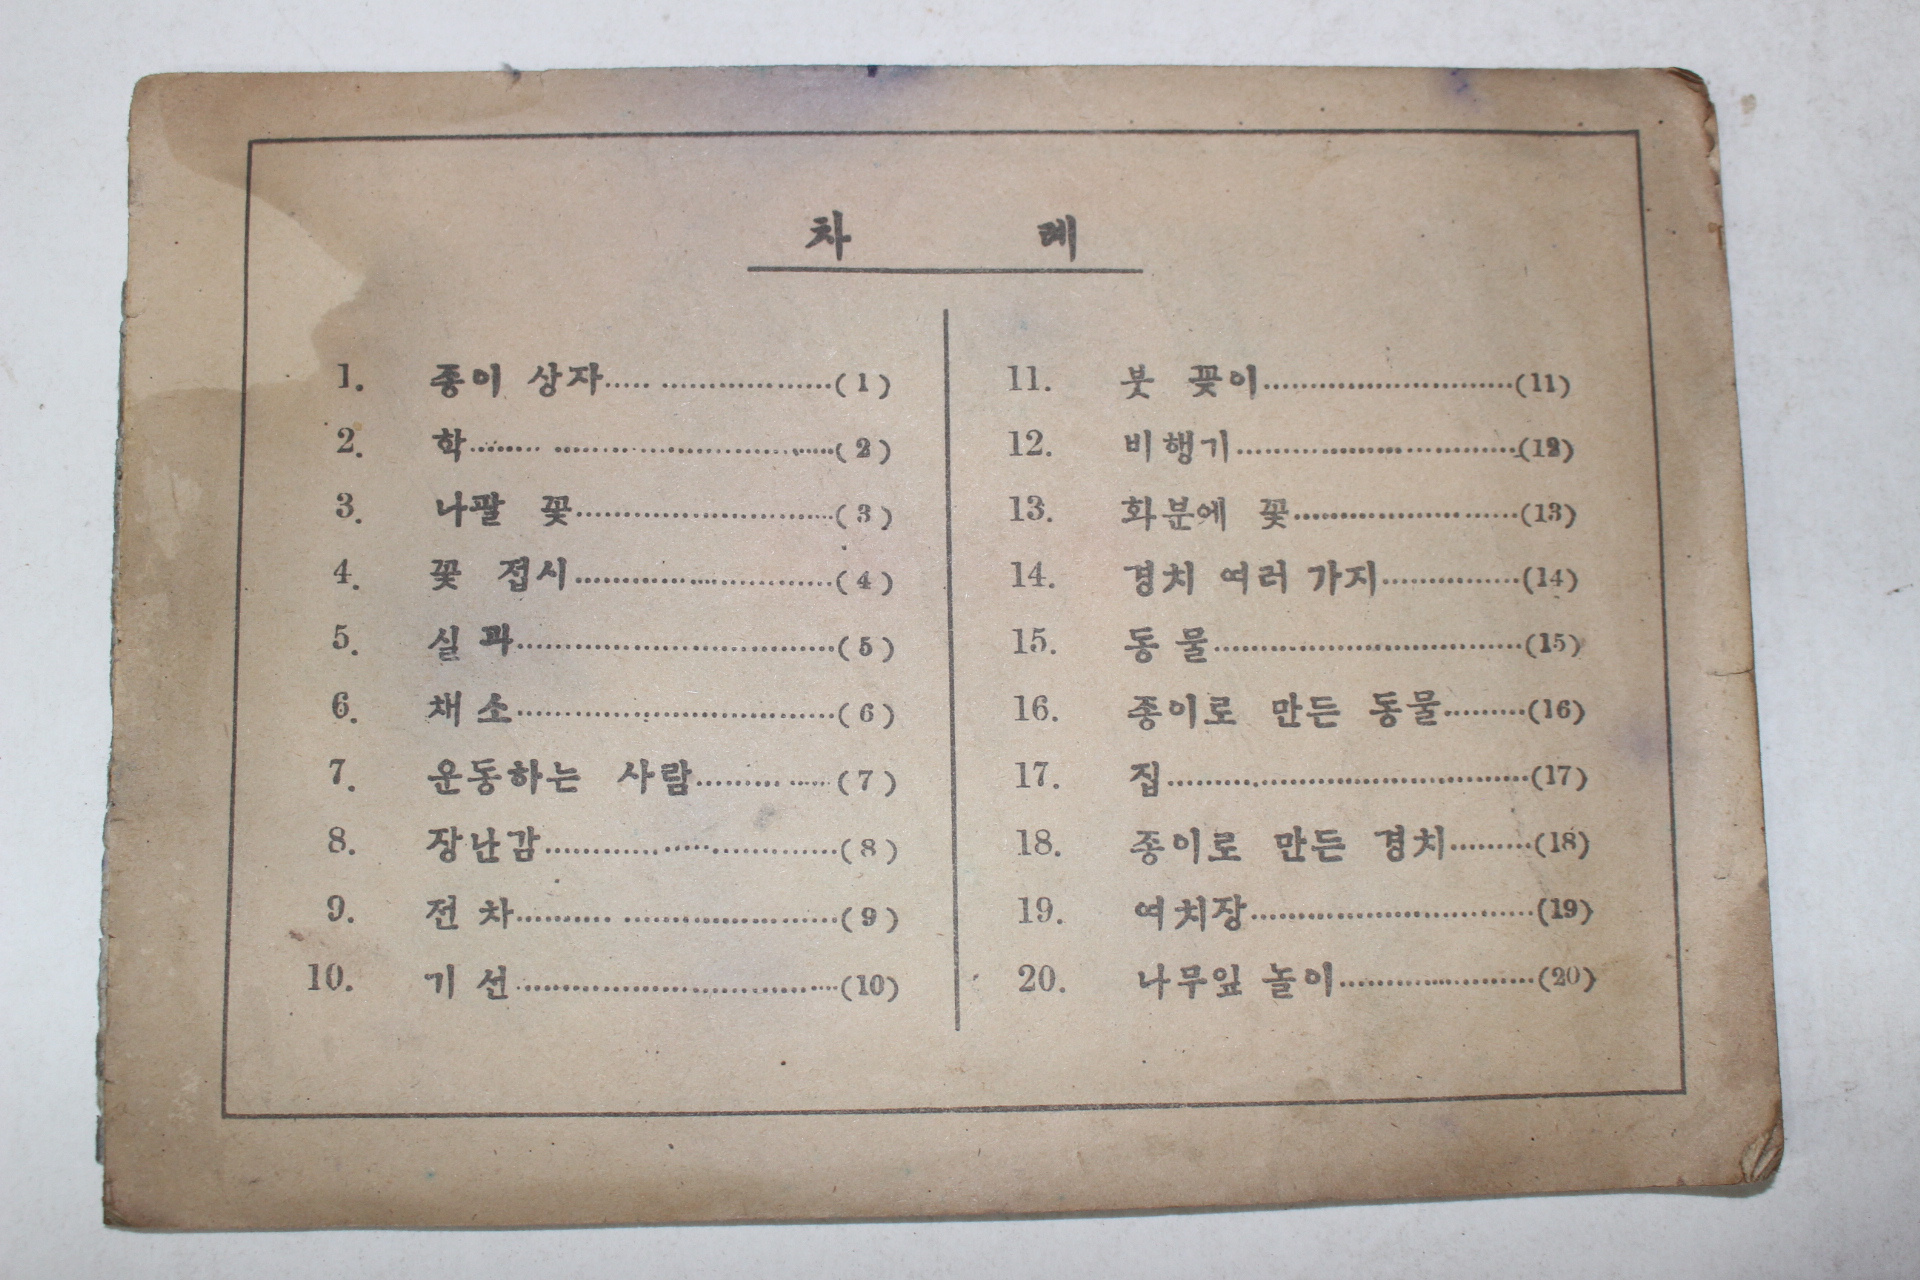 차 례
1. 종이 상자……………………(1)
2. 학……………………(2)
3. 나팔 꽃……………………(3)
4. 꽃 접시……………………(4)
5. 실 과……………………(5)
6. 채 소……………………(6)
7. 운동하는 사람……………(7)
8. 장난감……………………(8)
9. 전 차……………………(9)
10. 기 선……………………(10)
11. 붓 꽂이……………………(11)
12. 비행기……………………(12)
13. 화분에 꽃……………………(13)
14. 경치 여러 가지……………(14)
15. 동 물……………………(15)
16. 종이로 만든 동물………(16)
17. 집……………………(17)
18. 종이로 만든 경치………(18)
19. 여치장……………………(19)
20. 나무잎 놀이………………(20)